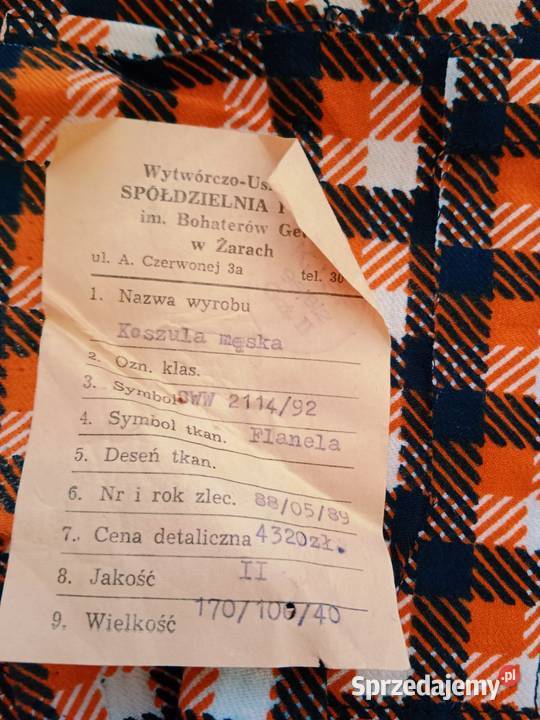 Wytwórczo-Us
SPÓŁDZIELNIA
im. Bohaterów Ge
w Żarach
ul. A. Czerwonej 3a tel. 30
1. Nazwa wyrobu
Koszula męska
2. Ozn. klas.
3. Symbol SWW 2114/92
4. Symbol tkan. Flanela
5. Deseń tkan.
6. Nr i rok zlec. 88/05/89
7. Cena detaliczna 4320zł.
8. Jakość II
9. Wielkość 170/100/40
Sprzedajemy.pl